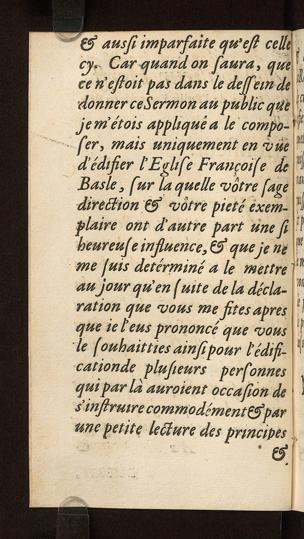 & aussi imparfaite qu'est celle
cy. Car quand on saura, que
ce n'estoit pas dans le dessein de
donner ce Sermon au public que
je m'étois appliqué a le compo-
ser, mais uniquement en vüe
d'édifier l'Eglise Françoise de
Basle, sur la quelle vôtre sage
direction & vôtre pieté exem-
plaire ont d'autre part une si
heureuse influence, & que je ne
me suis detérminé a le mettre
au jour qu'en suite de la décla-
ration que vous me fites apres
que ie l'eus prononcé que vous
le souhaitties ainsi pour l'édifi-
cationde plusieurs personnes
qui par là auroient occasion de
s'instruire commodément & par
une petite lecture des principes
&